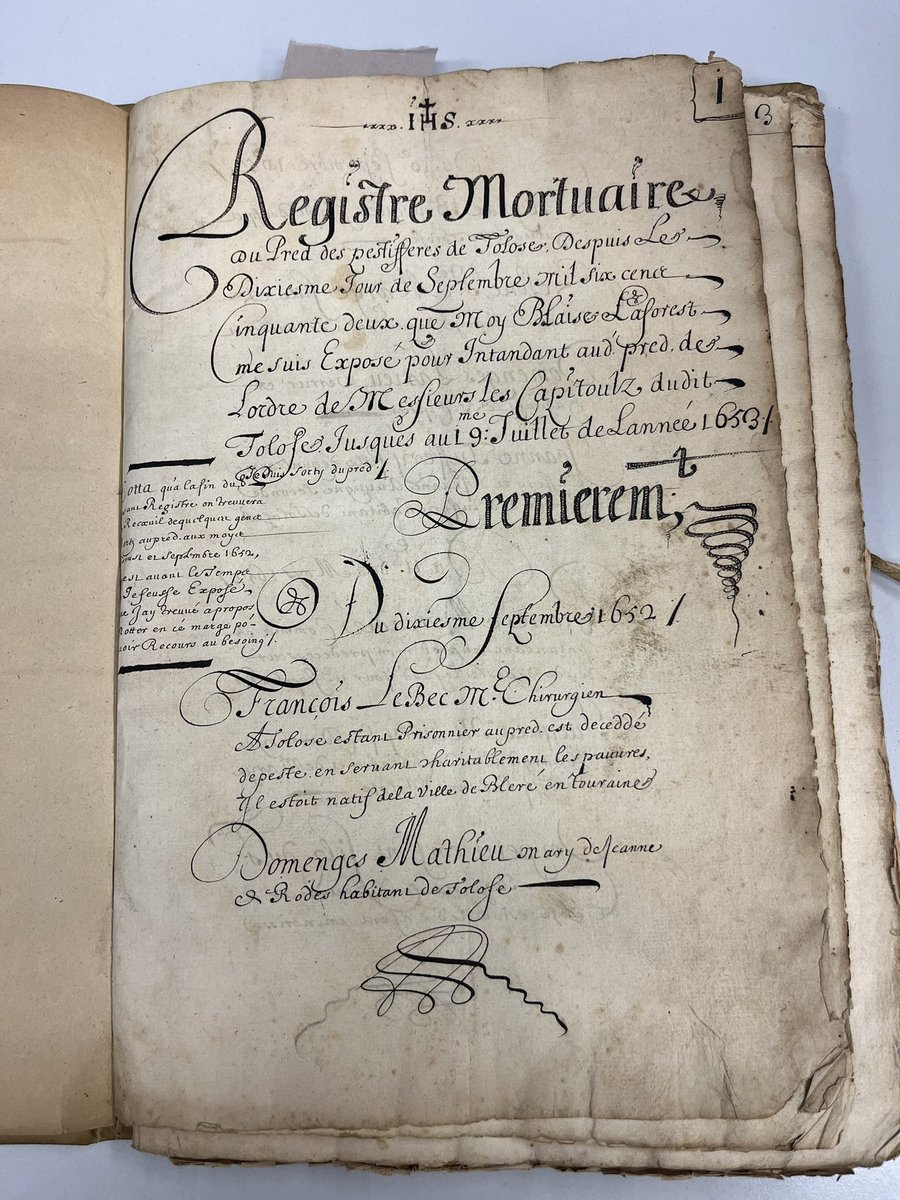 IHS
1
3
Registre Mortuaire
du Pred des pestifferes de Tolose, Despuis Le
Dixiesme Jour de Septembre Mil six cent
Cinquante deux que Moy Blaise Laforest
me suis Exposé pour Intandant aud. pred. de
Lordre de Messieurs les Capitoulz dudit
Tolose, Jusques au 19:me Juillet de Lanneé 1653 /.
Je suis sorty du pred /.
Premierem.t
otta qu'a la fin du
Registre on treuvera
Recœuil de quelques
au pred. aux moys
et septembre 1652,
est avant le Temps
Je feusse Exposé
Jay treuvé a propos
Nottor en cé margé po.
voir Recours au besoing /.
Du dixiesme Septembre 1652 /
François Le Bec M.e Chirurgien
A Tolose estant Prisonnier au pred. est deceddé
de peste. en servant charitablement les pauvres,
Il estoit natif de la Ville de Bleré en Touraine
Domenges Mathieu mary de Jeanne
Rodes habitant de Tolose